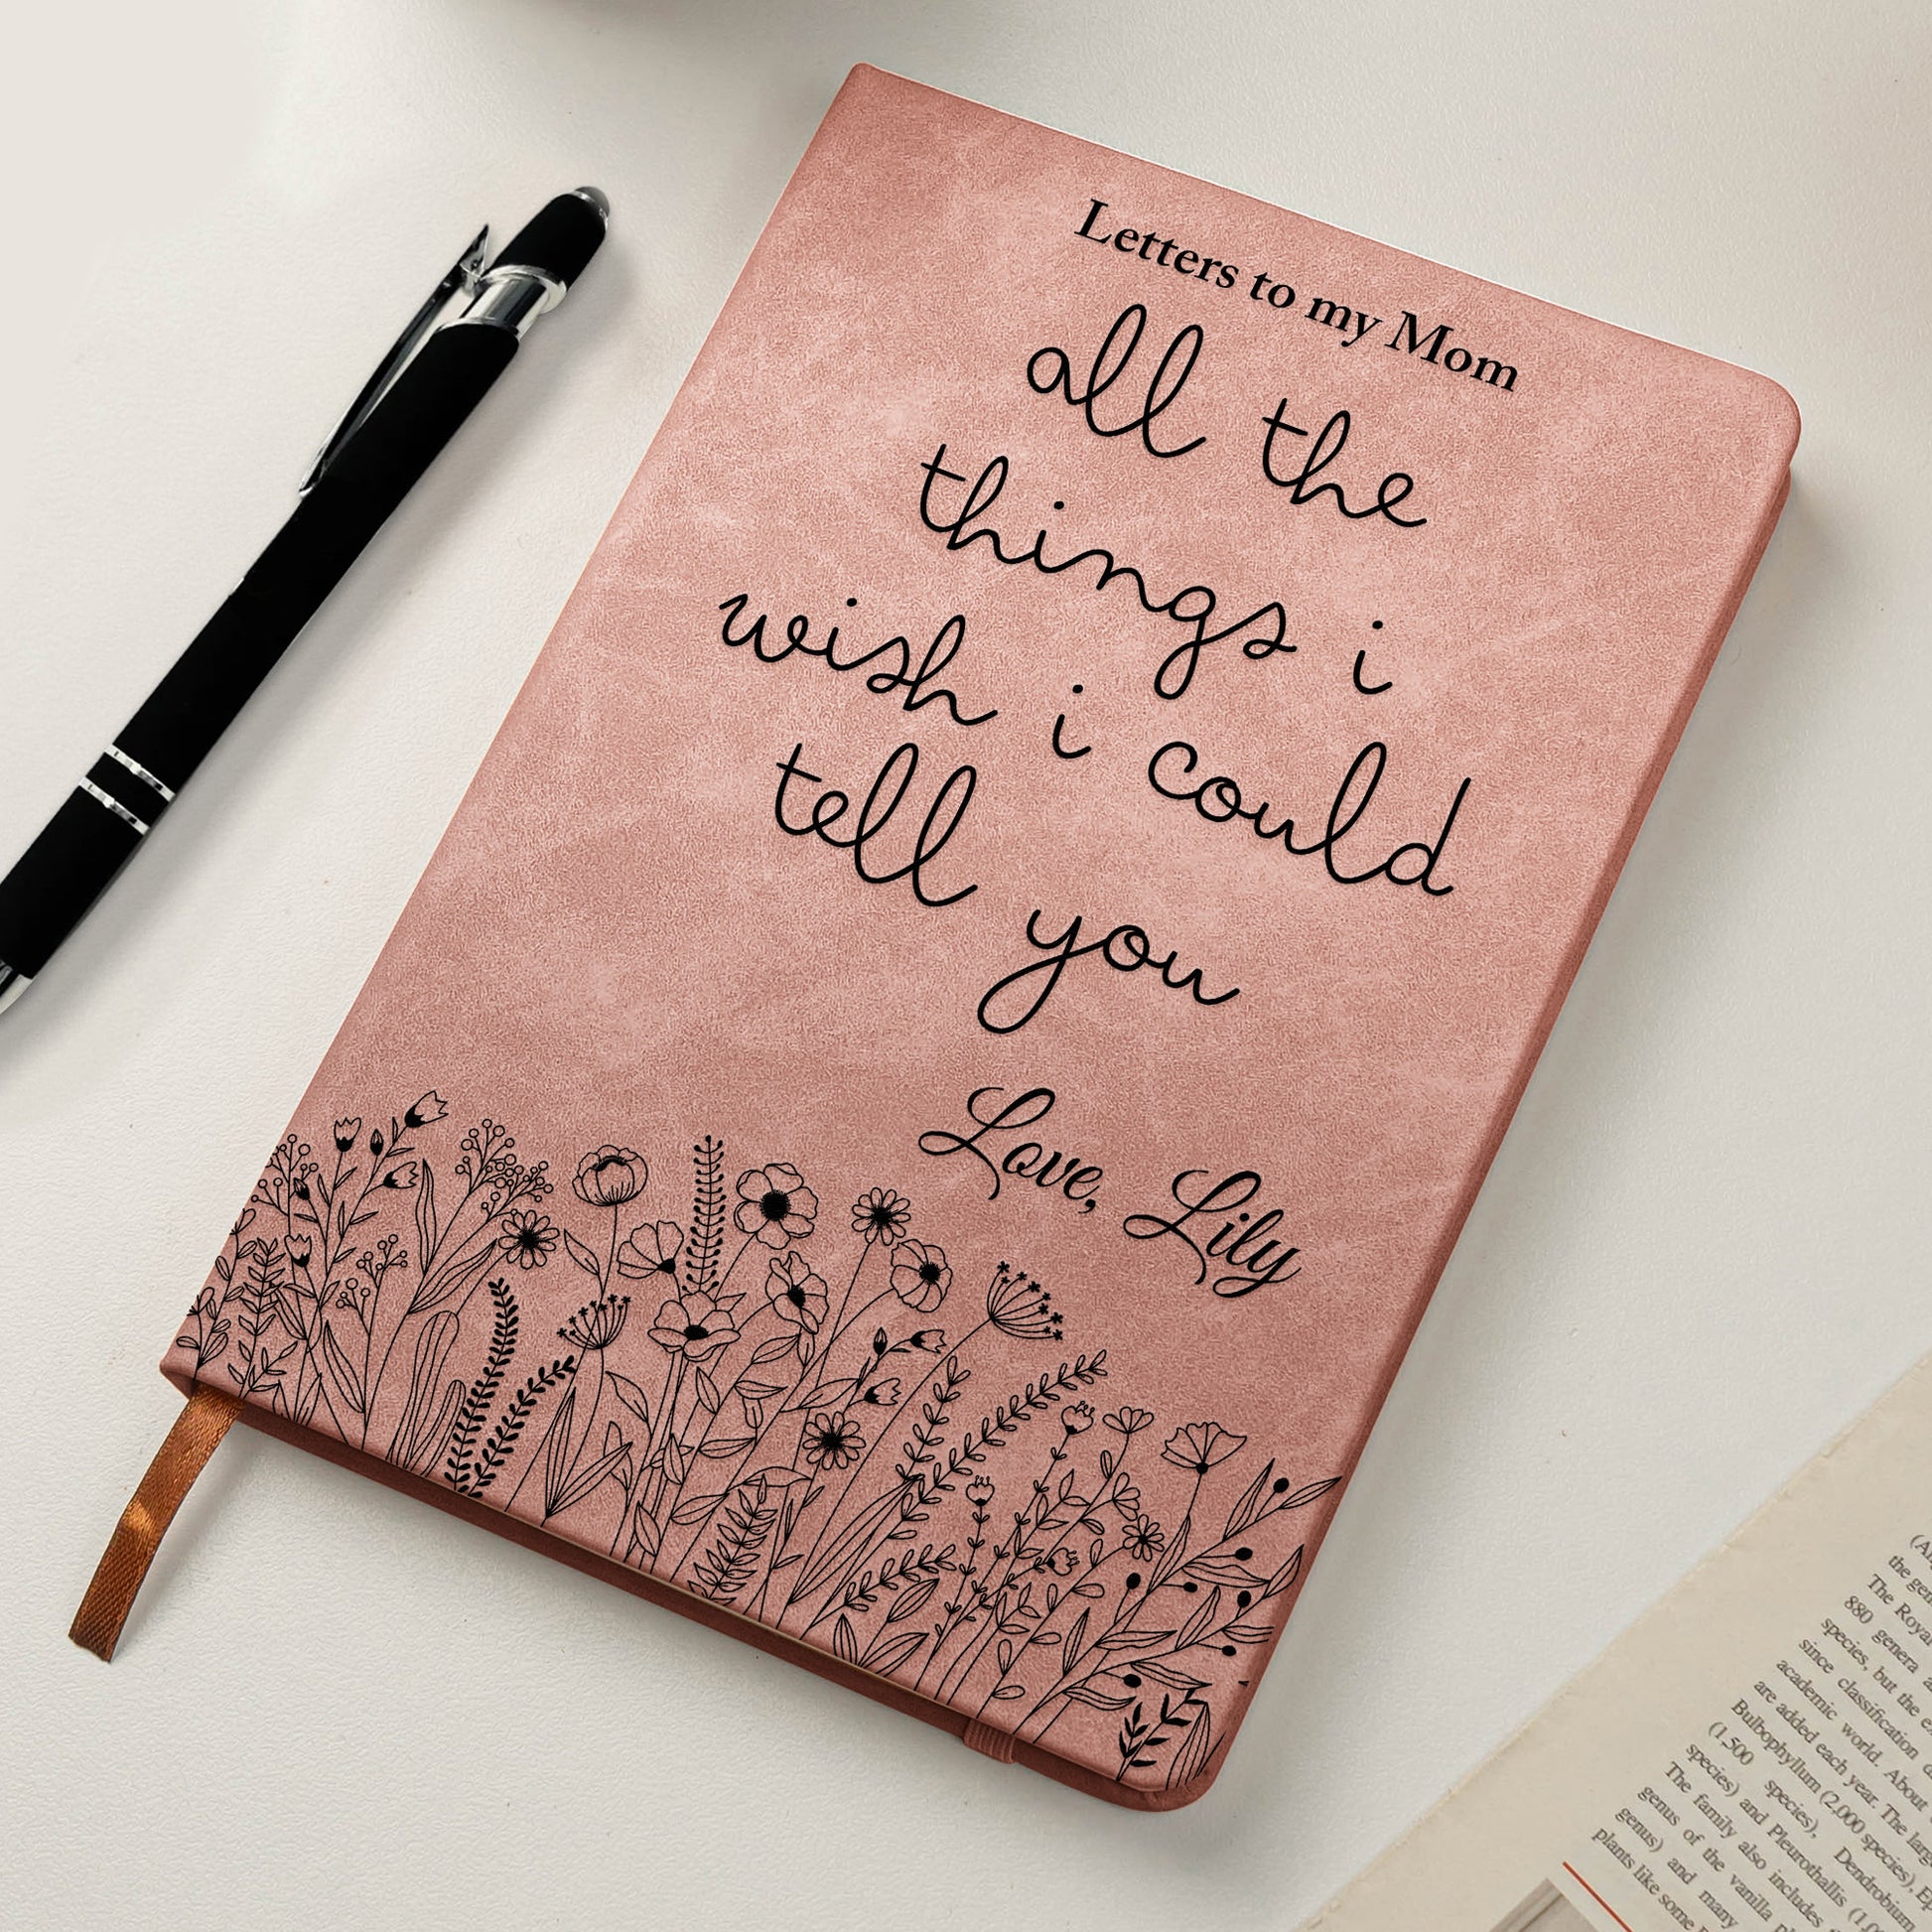 Letters to my Mom
all the
things i
wish i could
tell you
Love, Lily
the gen
The Royal
880 genera a
species, but the e
since classification
academic world. About
are added each year. The large
Bulbophyllum (2,000 species), E
(1.500 species), Dendrobium
species) and Pleurothallis (1,0
The family also includes
genus of the vanilla p
genus) and many
plants like some